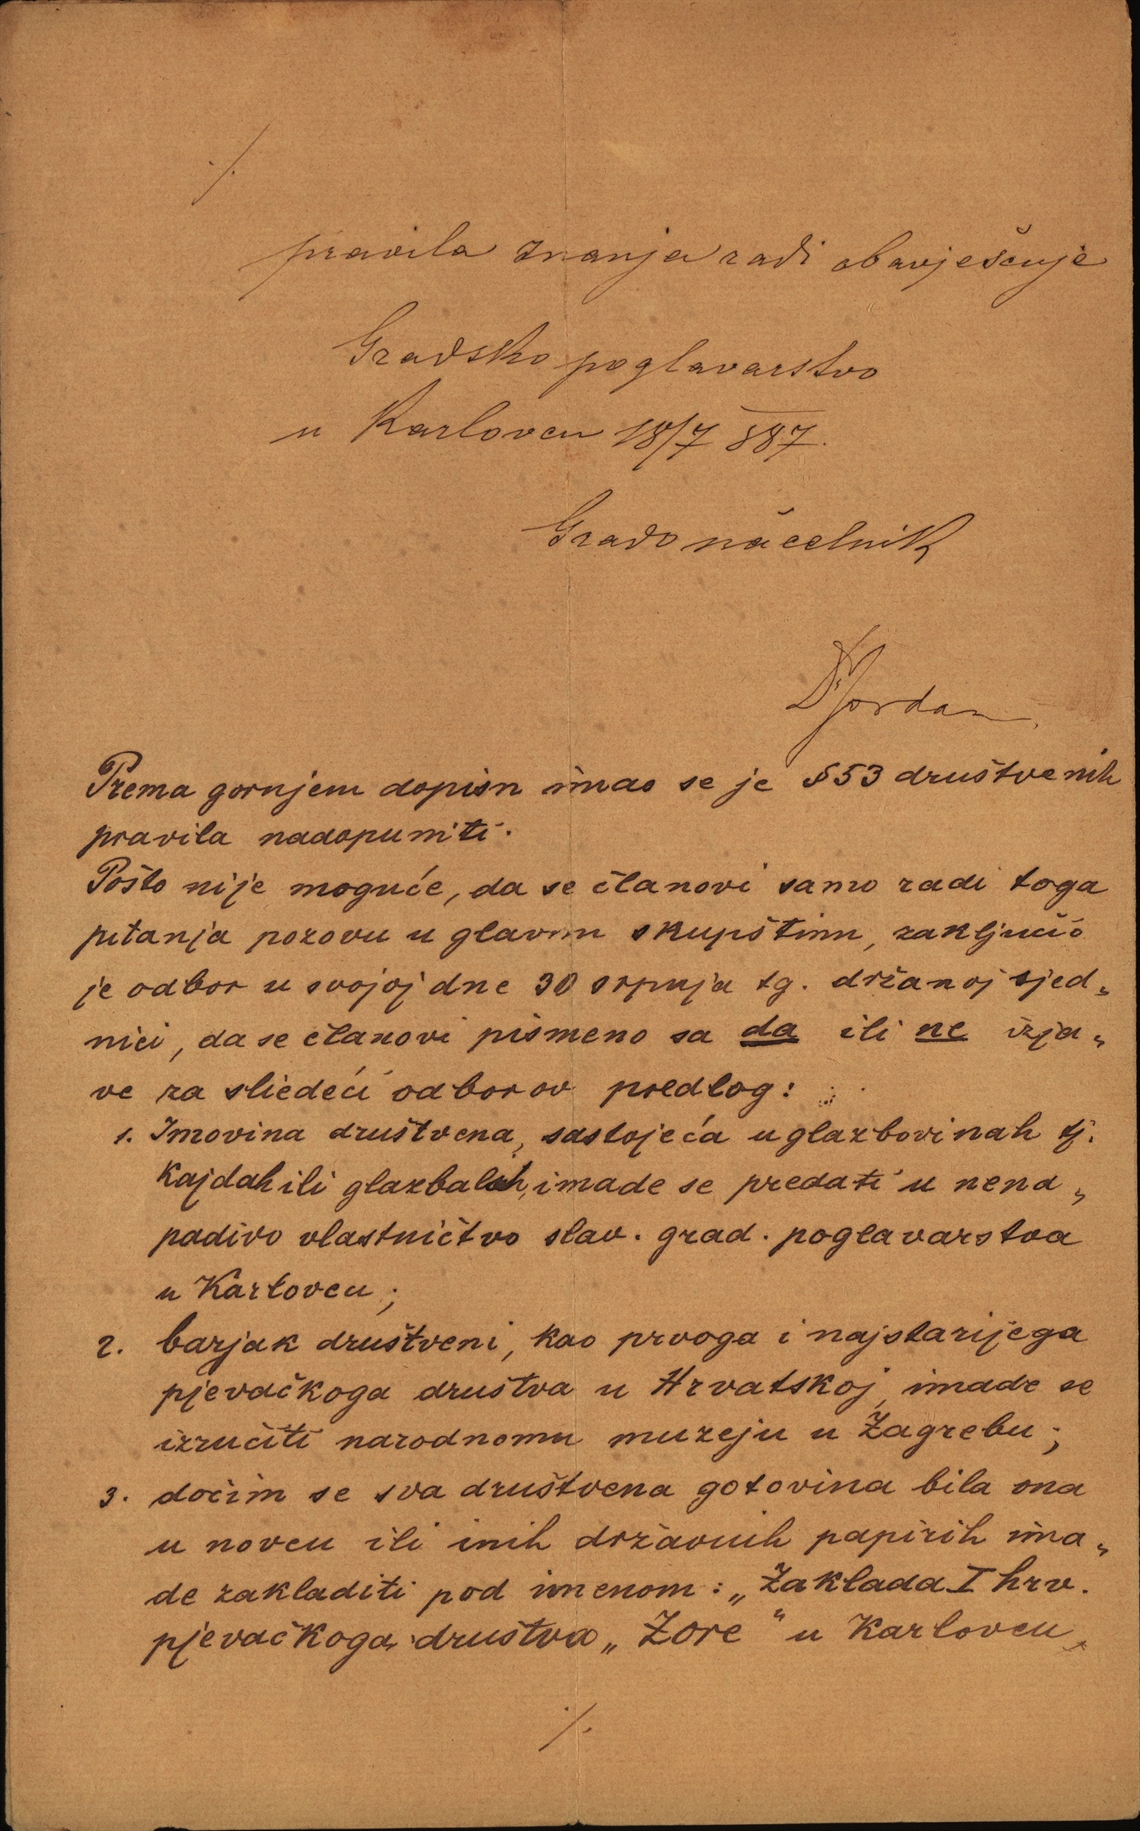 ./.
pravila znanja radi obavješćuje
Gradsko poglavarstvo
u Karlovcu 18/7 887.
Gradonačelnik
Dr Jordan
Prema gornjem dopisu imao se je § 53 društvenih
pravila nadopuniti.
Pošto nije moguće, da se članovi samo radi toga
pitanja pozovu u glavnu skupštinu, zaključio
je odbor u svojoj dne 30 srpnja tg. držanoj sjed„
nici, da se članovi pismeno sa da ili ne izja„
ve za sliedeći odborov predlog:
1. Imovina društvena, sastojeća u glazbovinah tj.
kajdah ili glazbalih, imade se predati u nena„
padivo vlastničtvo slav. grad. poglavarstva
u Karlovcu;
2. barjak društveni, kao prvoga i najstarijega
pjevačkoga društva u Hrvatskoj, imade se
izručiti narodnomu muzeju u Zagrebu;
3. dočim se sva društvena gotovina bila ona
u novcu ili inih državnih papirih ima„
de zakladiti pod imenom: „Zaklada I hrv.
pjevačkoga društva „Zore" u Karlovcu,
./.